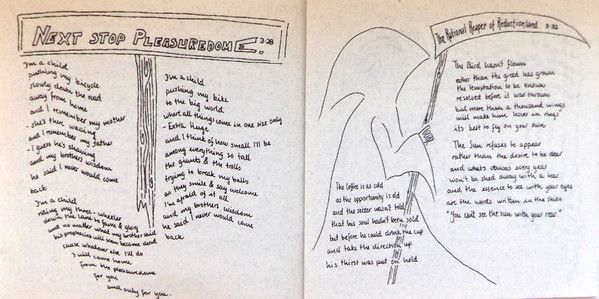 NEXT STOP PLEASUREDOME 3:28
I'm a child
pushing my bicycle
slowly down the road
away from home
and I remember my mother
- she's there waving
and I remember my father
- I guess he's shaving
and my brothers wisdom
he said I never would come
back
I'm a child
pushing my bike
to the big world
where all things come in one size only
- Extra Huge
and I think of how small I'll be
among everything so tall
the giants & the trolls
trying to break my balls
as they smile & say welcome
I'm afraid of it all
and my brothers wisdom
he said I never would come
back
I'm a child
riding my three-wheeler
down the lane to fame & glory
and no matter what my brother said
his prophecies will soon become dead
cause whatever else I'll do
I will come home
from the pleasuredome
for you
and only for you.
The Rational Reaper of Reductionland. 3:32
The Bird hasn't flown
rather than the greed has grown
the temptation to be known
resolved before it was thrown
but more than a thousand wings
will make him hover in rings
its best to fly on your own
The Sun refuses to appear
rather than the desire to be dear
and whats obvious every year
won't be shed away with a tear
and the essence to see with your eyes
are the words written in the skies
"You can't see the sun with your rear"
The Coffee is as cold
as the opportunity is old
and the sister wasn't told
that his soul hadn't been sold
but before he could drink the cup
and take the direction up
his thirst was put on hold